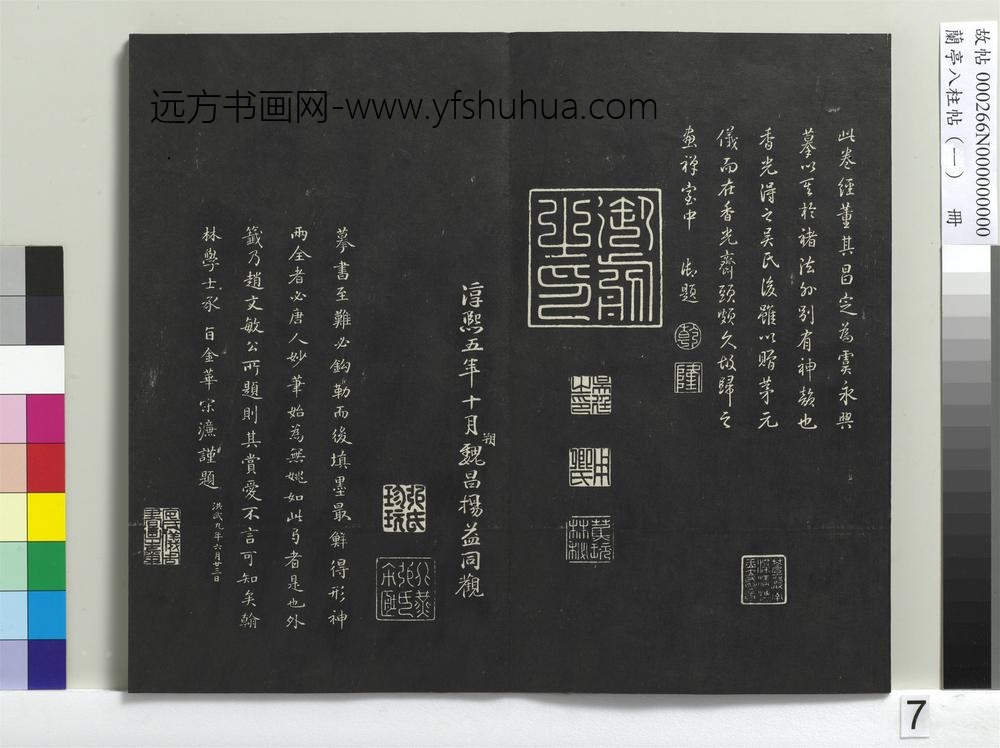 故帖 000266N000000000
蘭亭八柱帖（一） 冊
远方书画网-www.yfshuhua.com
此卷經董其昌定為虞永興
摹以其於褚法外別有神韻也
香光得之吴氏後雖以贈茅元
儀而在香光齋頭頗久故歸之
畫禪室中 御題
乾
隆
淳熙五年十月朔魏昌揚益同觀
摹書至難必鈎勒而後填墨最鮮得形神
兩全者必唐人妙筆始為無媿如此写者是也外
籤乃趙文敏公所題則其賞愛不言可知矣翰
林學士承旨金華宋濂謹題
洪武九年六月廿三日
張氏珍玩
7